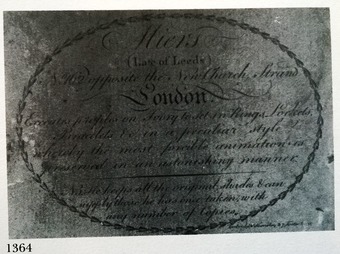 Miers
(Late of Leeds)
opposite the New Church, Strand
London.
Executes profiles on Ivory to set in Rings, Lockets,
Bracelets &c. in a peculiar style
whereby the most forcible animation is
preserved in an astonishing manner.
NB. He keeps all the original Shades & can
supply those he has once taken with
any number of Copies.
1364